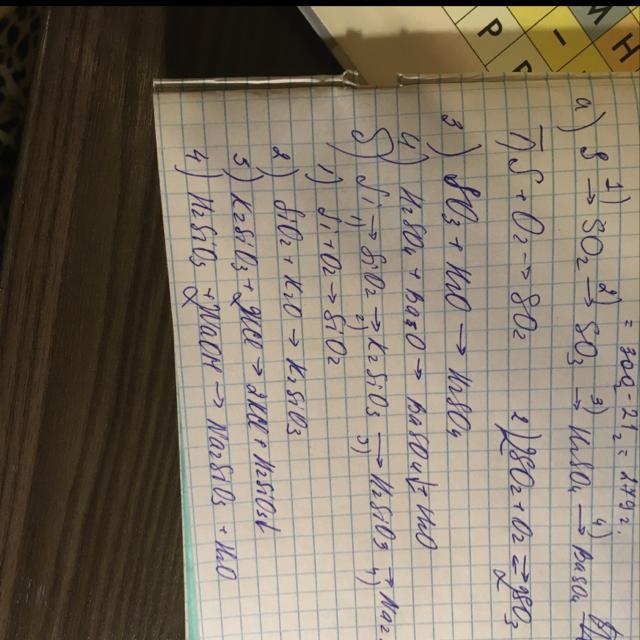 = 300г - 21г = 279г.
а) S 1)→ SO2 2)→ SO3 3)→ H2SO4 4)→ BaSO4
1) S + O2 → SO2
2) 2SO2 + O2 ⇌ 2SO3
3) SO3 + H2O → H2SO4
4) H2SO4 + BaO → BaSO4↓ + H2O
б) Si 1)→ SiO2 2)→ K2SiO3 3)→ H2SiO3 4)→ Na2
1) Si + O2 → SiO2
2) SiO2 + K2O → K2SiO3
3) K2SiO3 + 2HCl → 2KCl + H2SiO3↓
4) H2SiO3 + 2NaOH → Na2SiO3 + H2O
И
Н
Р
І
Р
Г